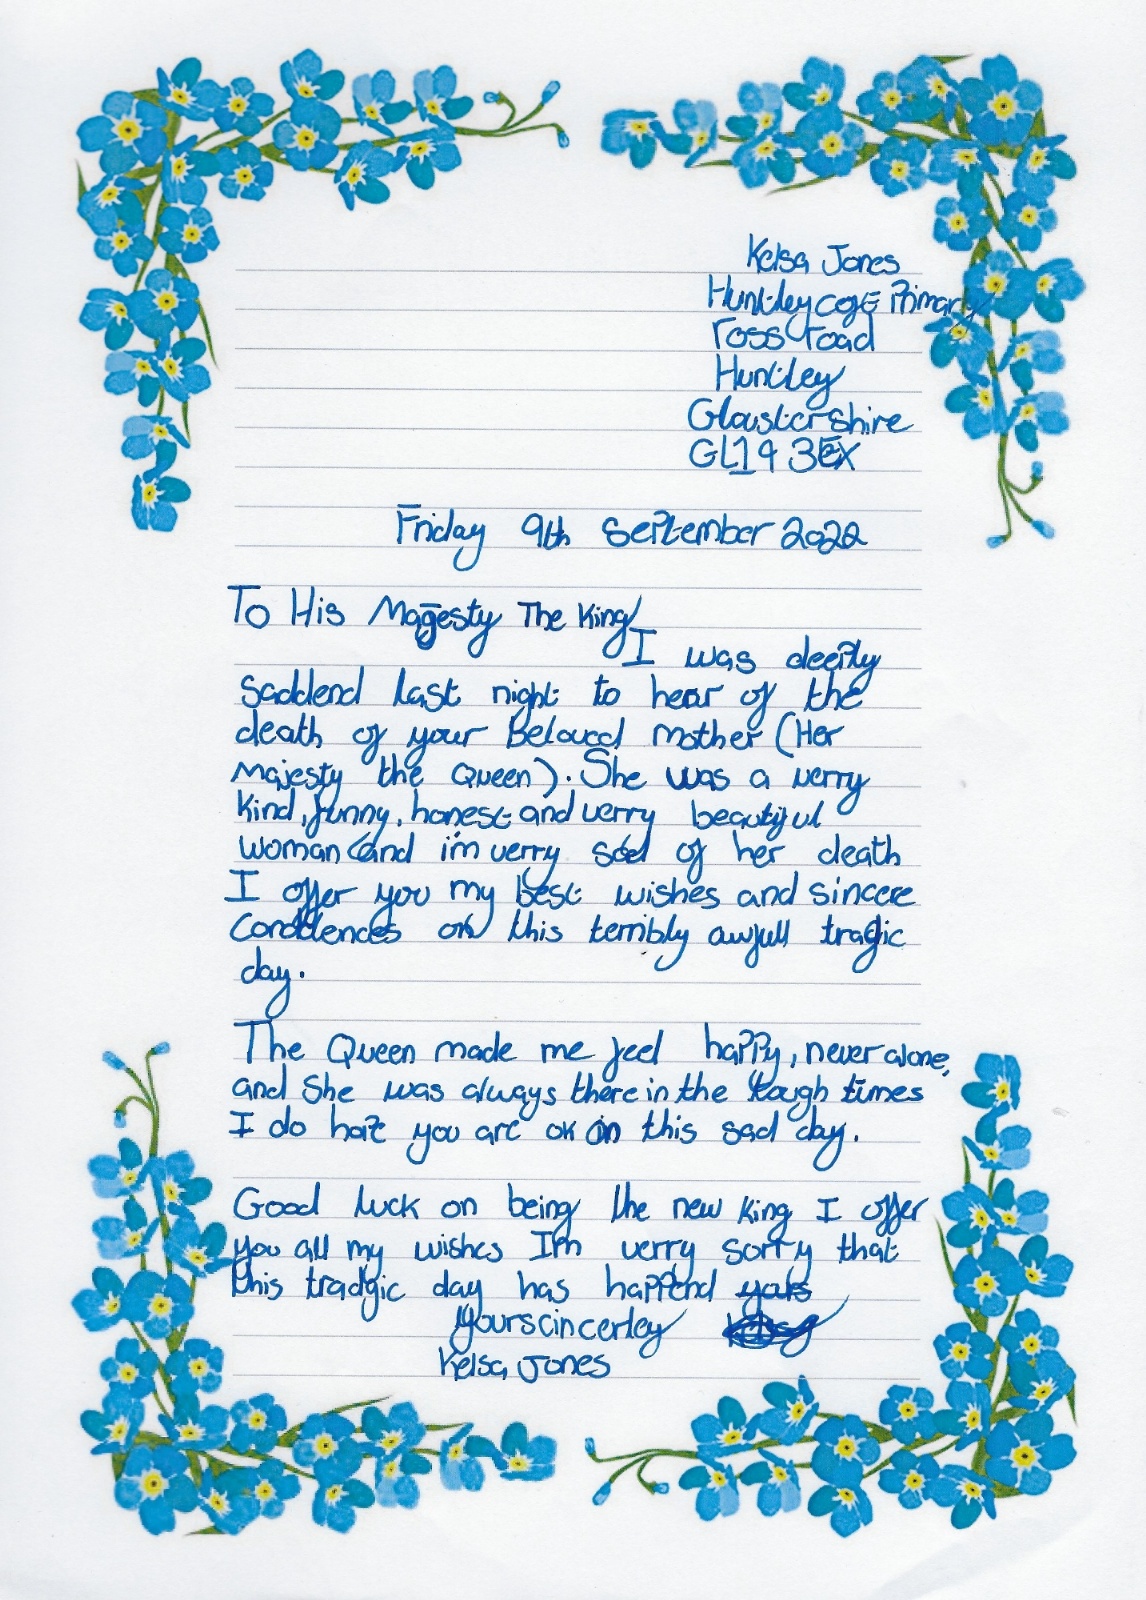 Kelsa Jones
Huntley CofE Primary
ross road
Huntley
Gloustershire
GL19 3EX
Friday 9th September 2022
To His Majesty The King
I was deeply
saddend last night to hear of the
death of your Beloved mother (Her
Majesty the Queen). She was a verry
kind, funny, honest and verry beautiful
woman and i'm verry sad of her death
I offer you my best wishes and sincere
condolences on this terribly awfull tragic
day.
The Queen made me feel happy, never alone,
and she was always there in the tough times
I do hope you are ok on this sad day.
Good luck on being the new king I offer
you all my wishes I'm verry sorry that
this tradgic day has happend
yourscincerley
Kelsa Jones